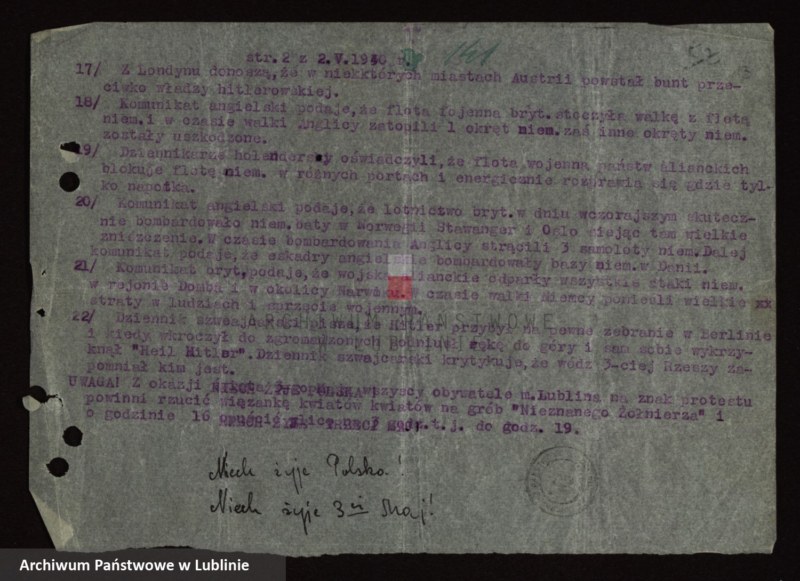 str. 2 z 2.V.1940 r. 141
52
3
17/ Z Londynu donoszą, że w niekktórych miastach Austrii powstał bunt prze-
ciwko władzy hitlerowskiej.
18/ Komunikat angielski podaje, że flota fojenna bryt. stoczyła walkę z flotą
niem. i w czasie walki Anglicy zatopili 1 okręt niem. zaś inne okręty niem.
zostały uszkodzone.
19/ Dziennikarze holenderscy oświadczyli, że flota wojenna państw alianckich
blokuje flotę niem. w różnych portach i energicznie rozprawia się gdzie tyl-
ko napotka.
20/ Komunikat angielski podaje, że lotnictwo bryt. w dniu wczorajszym skutecz-
nie bombardowało niem. baty w Norwegii Stawanger i Oslo siejąc tam wielkie
zniszczenie. W czasie bombardowania Anglicy strącili 3 samoloty niem. Dalej
komunikat podaje, że eskadry angielskie bombardowały bazy niem. w Danii.
21/ Komunikat bryt, podaje, że wojska alianckie odparły wszystkie ataki niem.
w rejonie Domba i w okolicy Narwiku. W czasie walki Niemcy ponieśli wielkie xx
straty w ludziach i sprzęcie wojennym.
PAŃSTWOWE
22/ Dziennik szwajcarski pisze, że Hitler przybył na pewne zebranie w Berlinie
i kiedy wkroczył do zgromadzonych podniusł rękę do góry i sam sobie wykrzy-
knął "Heil Hitler". Dziennik szwajcarski krytykuje, że wódz 3-ciej Rzeszy za-
pomniał kim jest.
UWAGA! Z okazji wszyscy obywatele m. Lublina na znak protestu
powinni rzucić wiązankę kwiatów kwiatów na grób "Nieznanego Żołnierza" i
o godzinie 16 opuścić ulice t.j. do godz. 19.
Niech żyje Polska!
Niech żyje 3-ci Maj!
Archiwum Państwowe w Lublinie